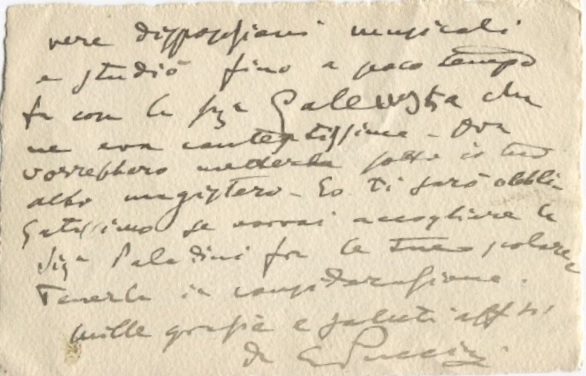 vere disposizioni musicali
e studiò fino a poco tempo
fa con la sigra Galevostra che
ne era contentissima - Ora
vorrebbero metterla sotto il tuo
alto magistero - Io ti sarò obbli
gatissimo se vorrai accogliere la
sigra Paladini fra le tue scolare e
tenerla in considerazione.
Mille grazie e saluti affsi
da GPuccini